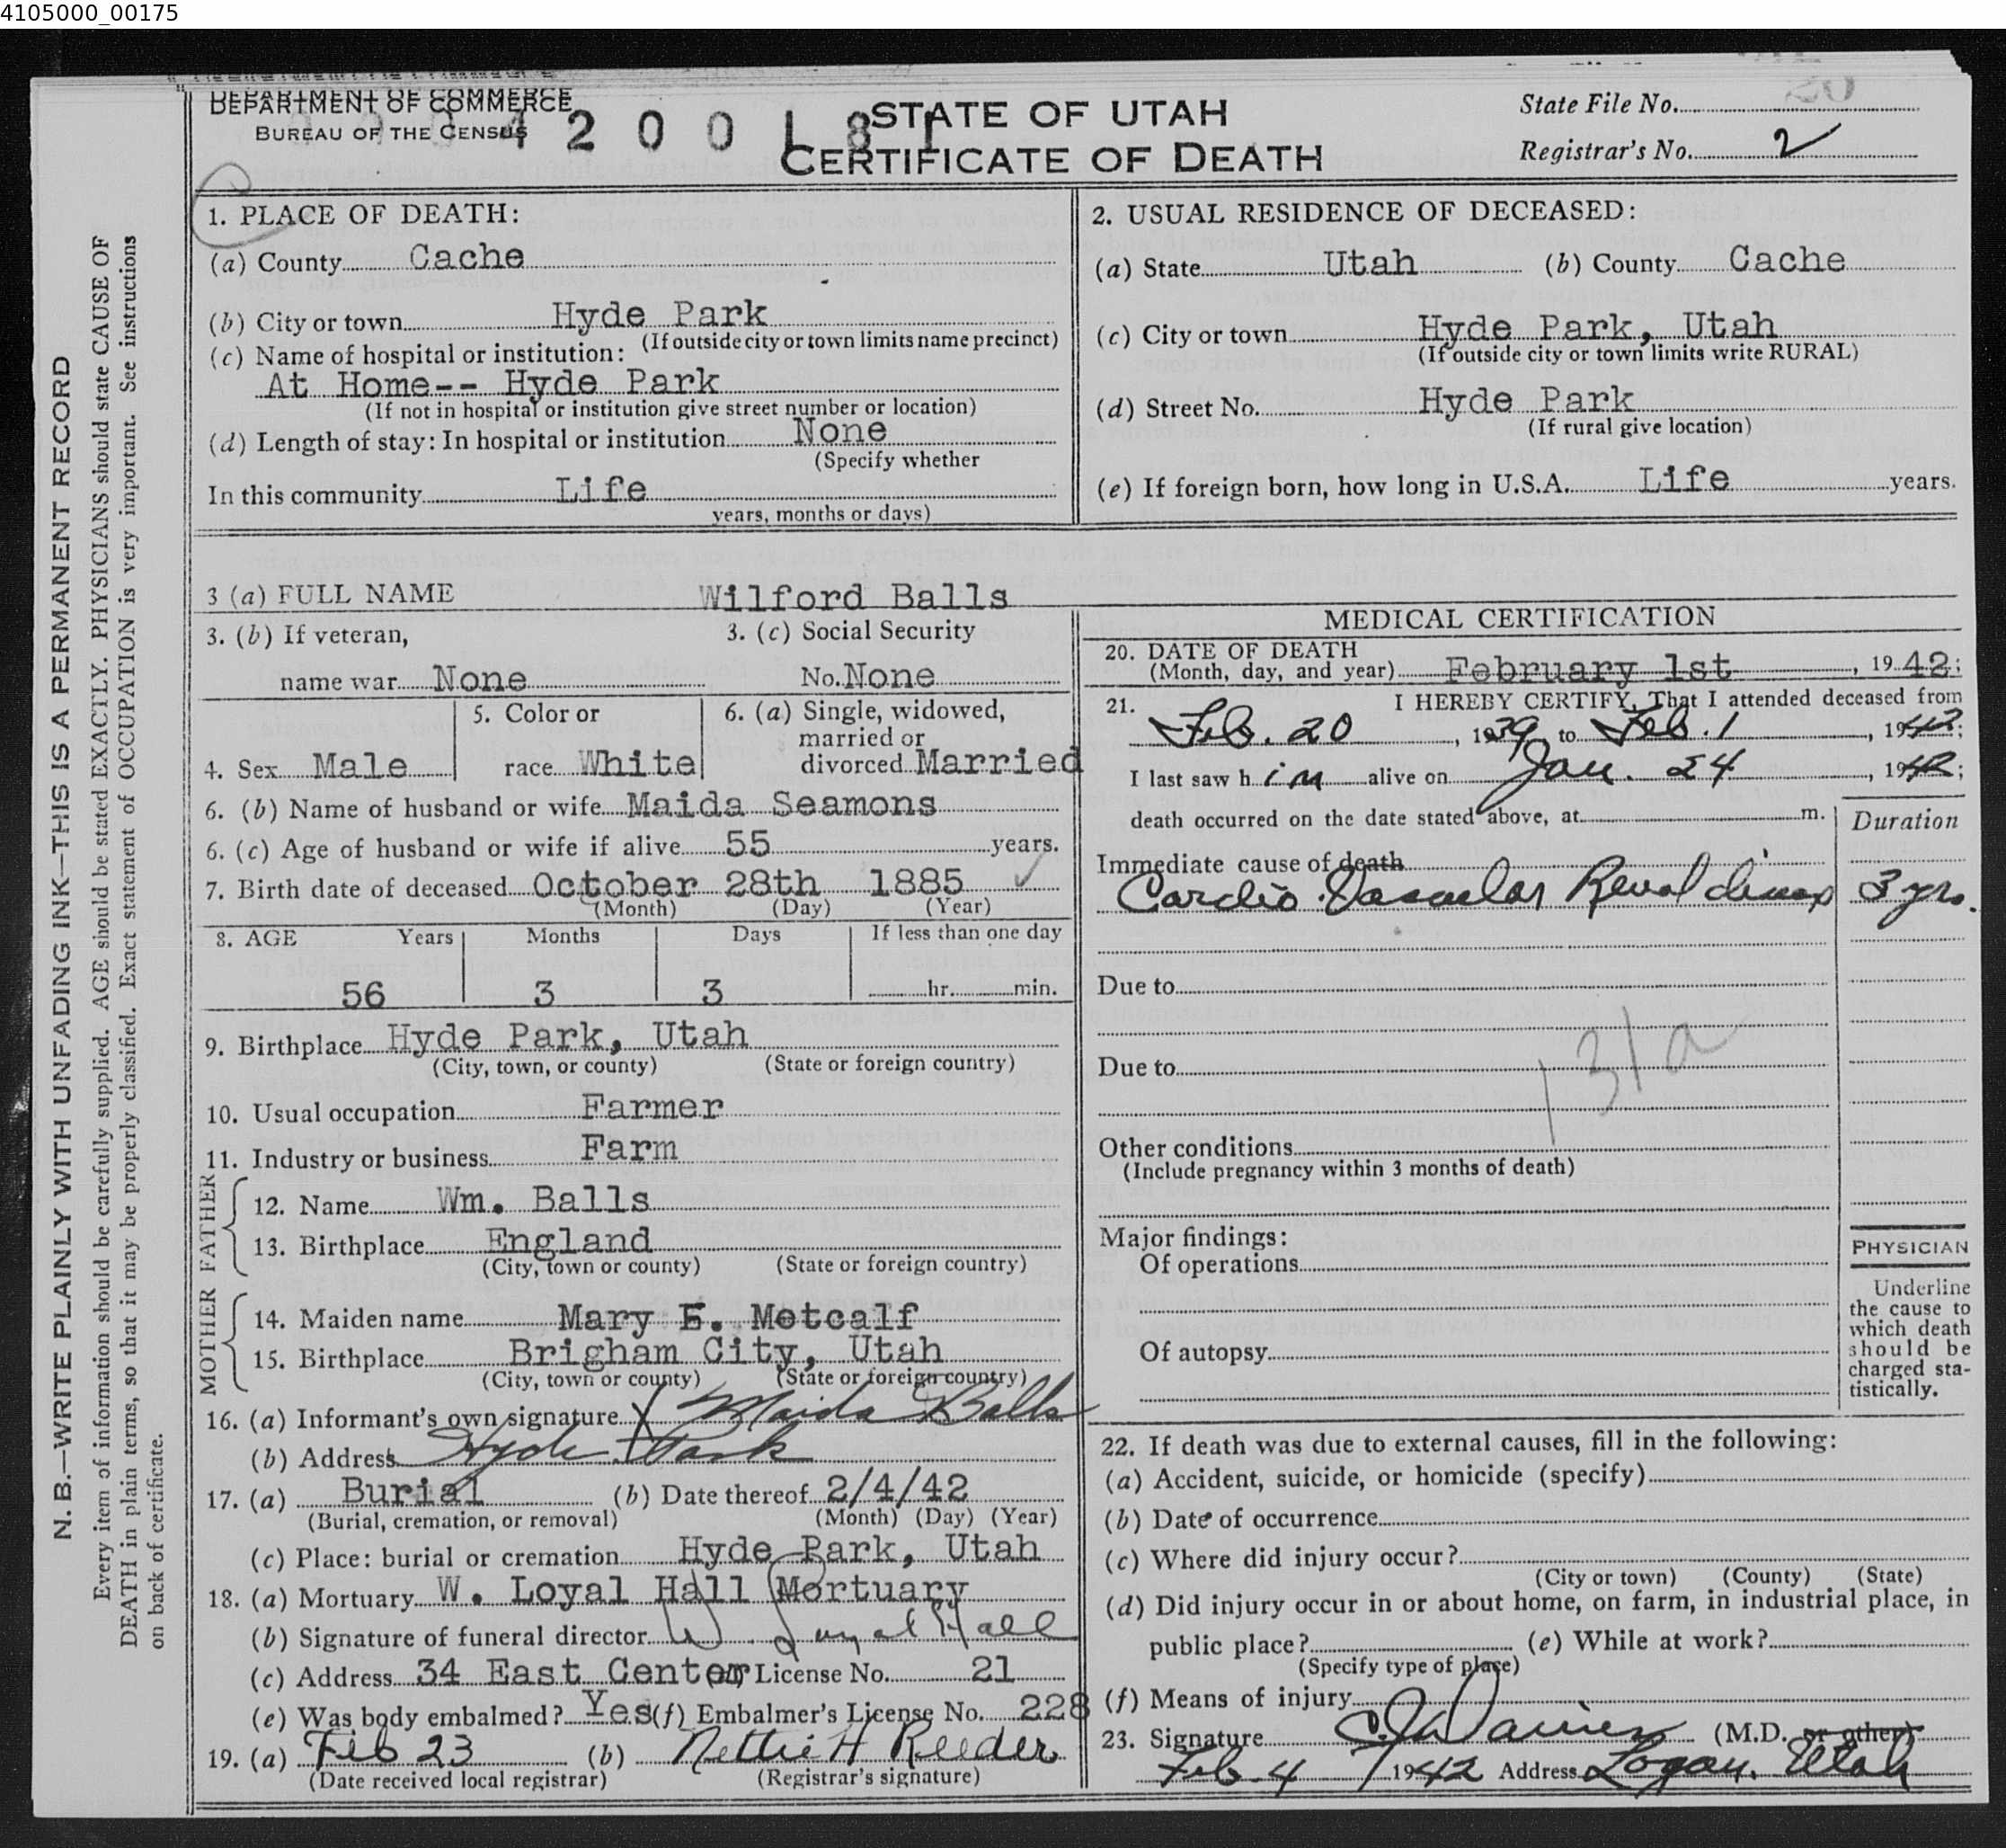 4105000_00175
DEPARTMENT OF COMMERCE
BUREAU OF THE CENSUS
STATE OF UTAH
CERTIFICATE OF DEATH
State File No.
Registrar's No. 2
N. B.—WRITE PLAINLY WITH UNFADING INK—THIS IS A PERMANENT RECORD
Every item of information should be carefully supplied. AGE should be stated EXACTLY. PHYSICIANS should state CAUSE OF
DEATH in plain terms, so that it may be properly classified. Exact statement of OCCUPATION is very important. See instructions
on back of certificate.
1. PLACE OF DEATH:
(a) County Cache
(b) City or town Hyde Park
(If outside city or town limits name precinct)
(c) Name of hospital or institution:
At Home-- Hyde Park
(If not in hospital or institution give street number or location)
(d) Length of stay: In hospital or institution None
(Specify whether
In this community Life
years, months or days)
2. USUAL RESIDENCE OF DECEASED:
(a) State Utah (b) County Cache
(c) City or town Hyde Park, Utah
(If outside city or town limits write RURAL)
(d) Street No. Hyde Park
(If rural give location)
(e) If foreign born, how long in U.S.A. Life years.
3 (a) FULL NAME Wilford Balls
3. (b) If veteran,
name war None
3. (c) Social Security
No. None
4. Sex Male
5. Color or
race White
6. (a) Single, widowed,
married or
divorced Married
6. (b) Name of husband or wife Maida Seamons
6. (c) Age of husband or wife if alive 55 years.
7. Birth date of deceased October 28th 1885
(Month) (Day) (Year)
8. AGE Years Months Days If less than one day
56 3 3 hr. min.
9. Birthplace Hyde Park, Utah
(City, town, or county) (State or foreign country)
10. Usual occupation Farmer
11. Industry or business Farm
FATHER
12. Name Wm. Balls
13. Birthplace England
(City, town or county) (State or foreign country)
MOTHER
14. Maiden name Mary E. Metcalf
15. Birthplace Brigham City, Utah
(City, town or county) (State or foreign country)
16. (a) Informant's own signature X Maida Balls
(b) Address Hyde Park
17. (a) Burial (b) Date thereof 2/4/42
(Burial, cremation, or removal) (Month) (Day) (Year)
(c) Place: burial or cremation Hyde Park, Utah
18. (a) Mortuary W. Loyal Hall Mortuary
(b) Signature of funeral director W. Loyal Hall
(c) Address 34 East Center License No. 21
(e) Was body embalmed? Yes (f) Embalmer's License No. 228
19. (a) Feb 23 (b) Nettie H Reeder
(Date received local registrar) (Registrar's signature)
MEDICAL CERTIFICATION
20. DATE OF DEATH
(Month, day, and year) February 1st, 19 42;
21. I HEREBY CERTIFY, That I attended deceased from
Feb. 20, 1939 to Feb. 1, 1942;
I last saw h im alive on Jan. 24, 1942;
death occurred on the date stated above, at m.
Duration
Immediate cause of death
Cardio Vascular Renal disease 3 yrs.
Due to
Due to
131a
Other conditions
(Include pregnancy within 3 months of death)
Major findings:
Of operations
Of autopsy
PHYSICIAN
Underline
the cause to
which death
should be
charged sta-
tistically.
22. If death was due to external causes, fill in the following:
(a) Accident, suicide, or homicide (specify)
(b) Date of occurrence
(c) Where did injury occur?
(City or town) (County) (State)
(d) Did injury occur in or about home, on farm, in industrial place, in
public place? (e) While at work?
(Specify type of place)
(f) Means of injury
23. Signature (M.D. or other)
Feb. 4 1942 Address Logan, Utah